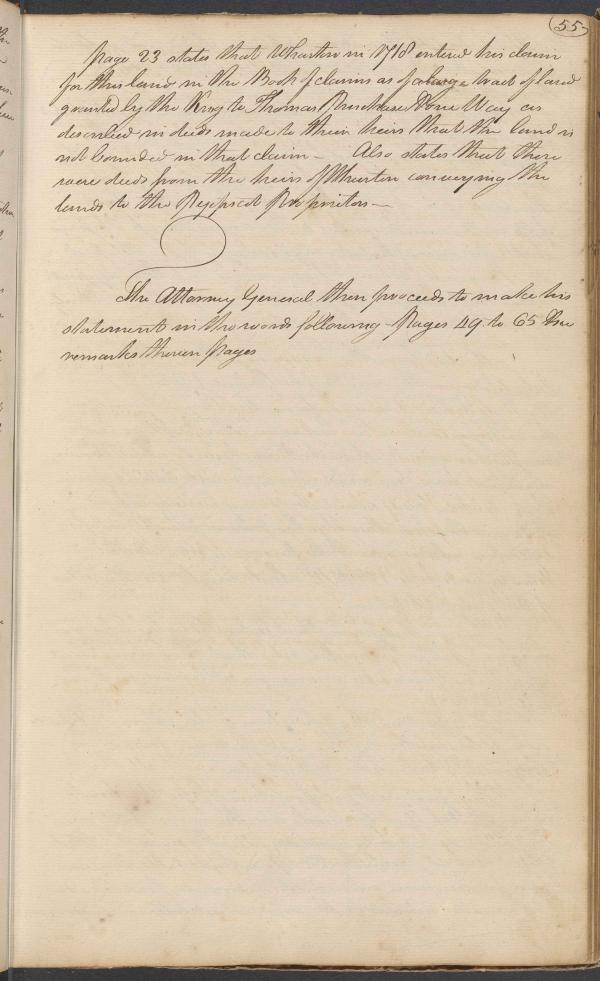 55
Page 23 states that Wharton in 1718 entered his claim
for this land in the Book of claims as of a large tract of land
granted by the King to Thomas Purchase & one Way as
described in deeds made to their heirs that the land is
not bounded in that claim - Also states that there
were deeds from the heirs of Wharton conveying the
lands to the Pejepscot Proprietors -
The Attorney General then proceeds to make his
statement in the words following - Pages 49 to 65
remarks thereon pages